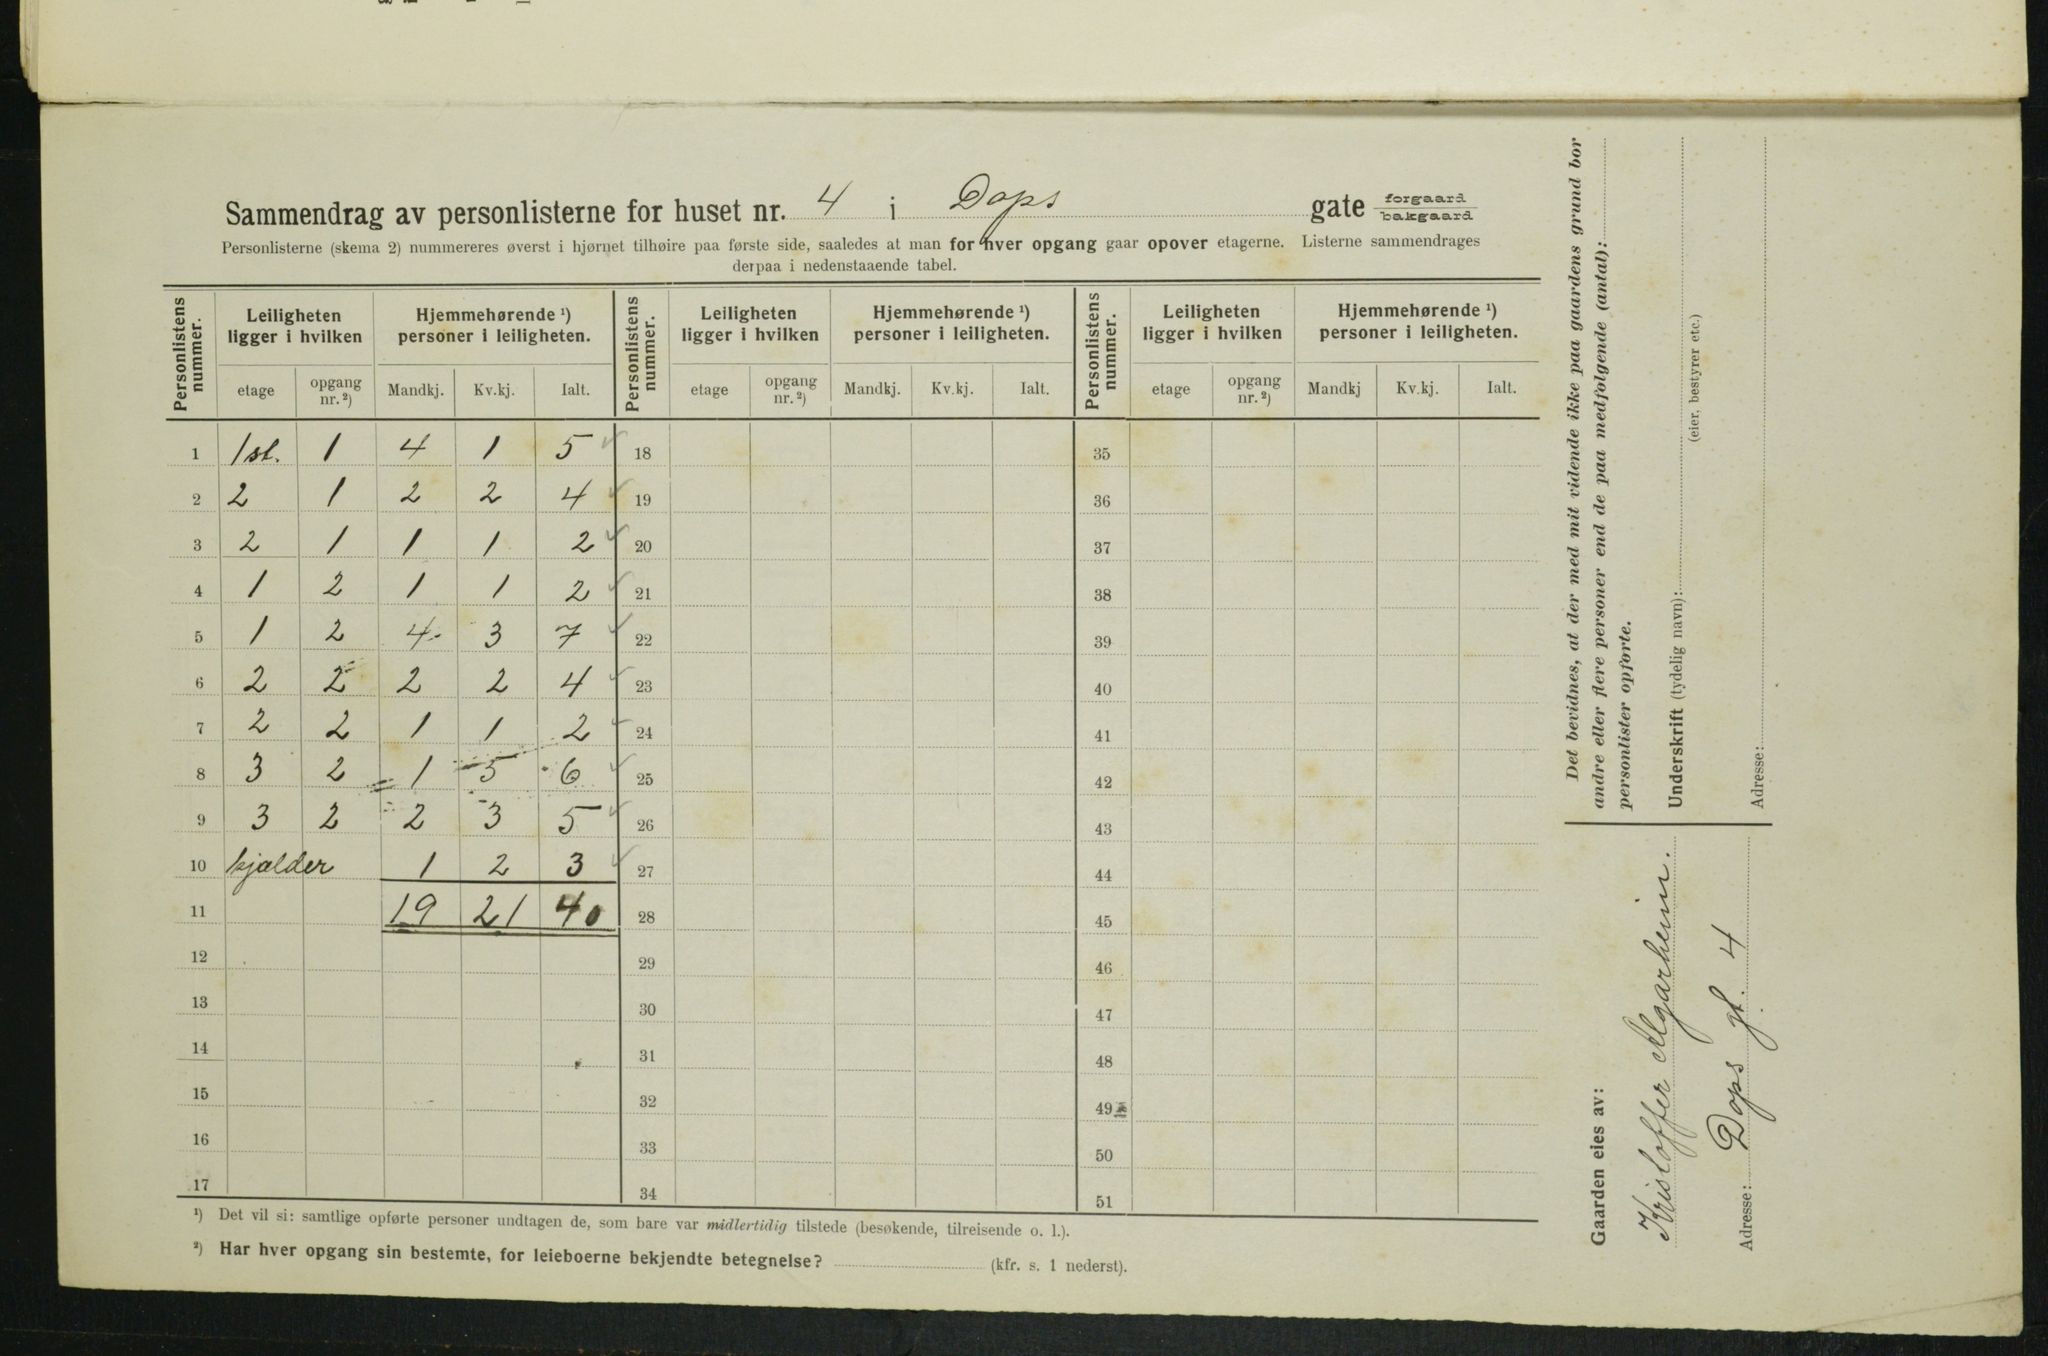 Sammendrag av personlisterne for huset nr. 4 i Dops gate forgaard bakgaard
Personlisterne (skema 2) nummereres øverst i hjørnet tilhøire paa første side, saaledes at man for hver opgang gaar opover etagerne. Listerne sammendrages
derpaa i nedenstaaende tabel.
Personlistens nummer. Leiligheten ligger i hvilken Hjemmehørende ¹) personer i leiligheten. Personlistens nummer. Leiligheten ligger i hvilken Hjemmehørende ¹) personer i leiligheten. Personlistens nummer. Leiligheten ligger i hvilken Hjemmehørende ¹) personer i leiligheten.
etage opgang nr. ²) Mandkj. Kv.kj. Ialt. etage opgang nr. ²) Mandkj. Kv.kj. Ialt. etage opgang nr. ²) Mandkj Kv.kj. Ialt.
1 1 st. 1 4 1 5 18 35
2 2 1 2 2 4 19 36
3 2 1 1 1 2 20 37
4 1 2 1 1 2 21 38
5 1 2 4 3 7 22 39
6 2 2 2 2 4 23 40
7 2 2 1 1 2 24 41
8 3 2 1 5 6 25 42
9 3 2 2 3 5 26 43
10 kjælder 1 2 3 27 44
11 19 21 40 28 45
12 29 46
13 30 47
14 31 48
15 32 49
16 33 50
17 34 51
¹) Det vil si: samtlige opførte personer undtagen de, som bare var midlertidig tilstede (besøkende, tilreisende o. l.).
²) Har hver opgang sin bestemte, for leieboerne bekjendte betegnelse? (kfr. s. 1 nederst).
Det bevidnes, at der med mit vidende ikke paa gaardens grund bor
andre eller flere personer end de paa medfølgende (antal):
personlister opførte.
Underskrift (tydelig navn):
(eier, bestyrer etc.)
Adresse:
Gaarden eies av:
Kristoffer Algarheim.
Adresse: Dops gt. 4